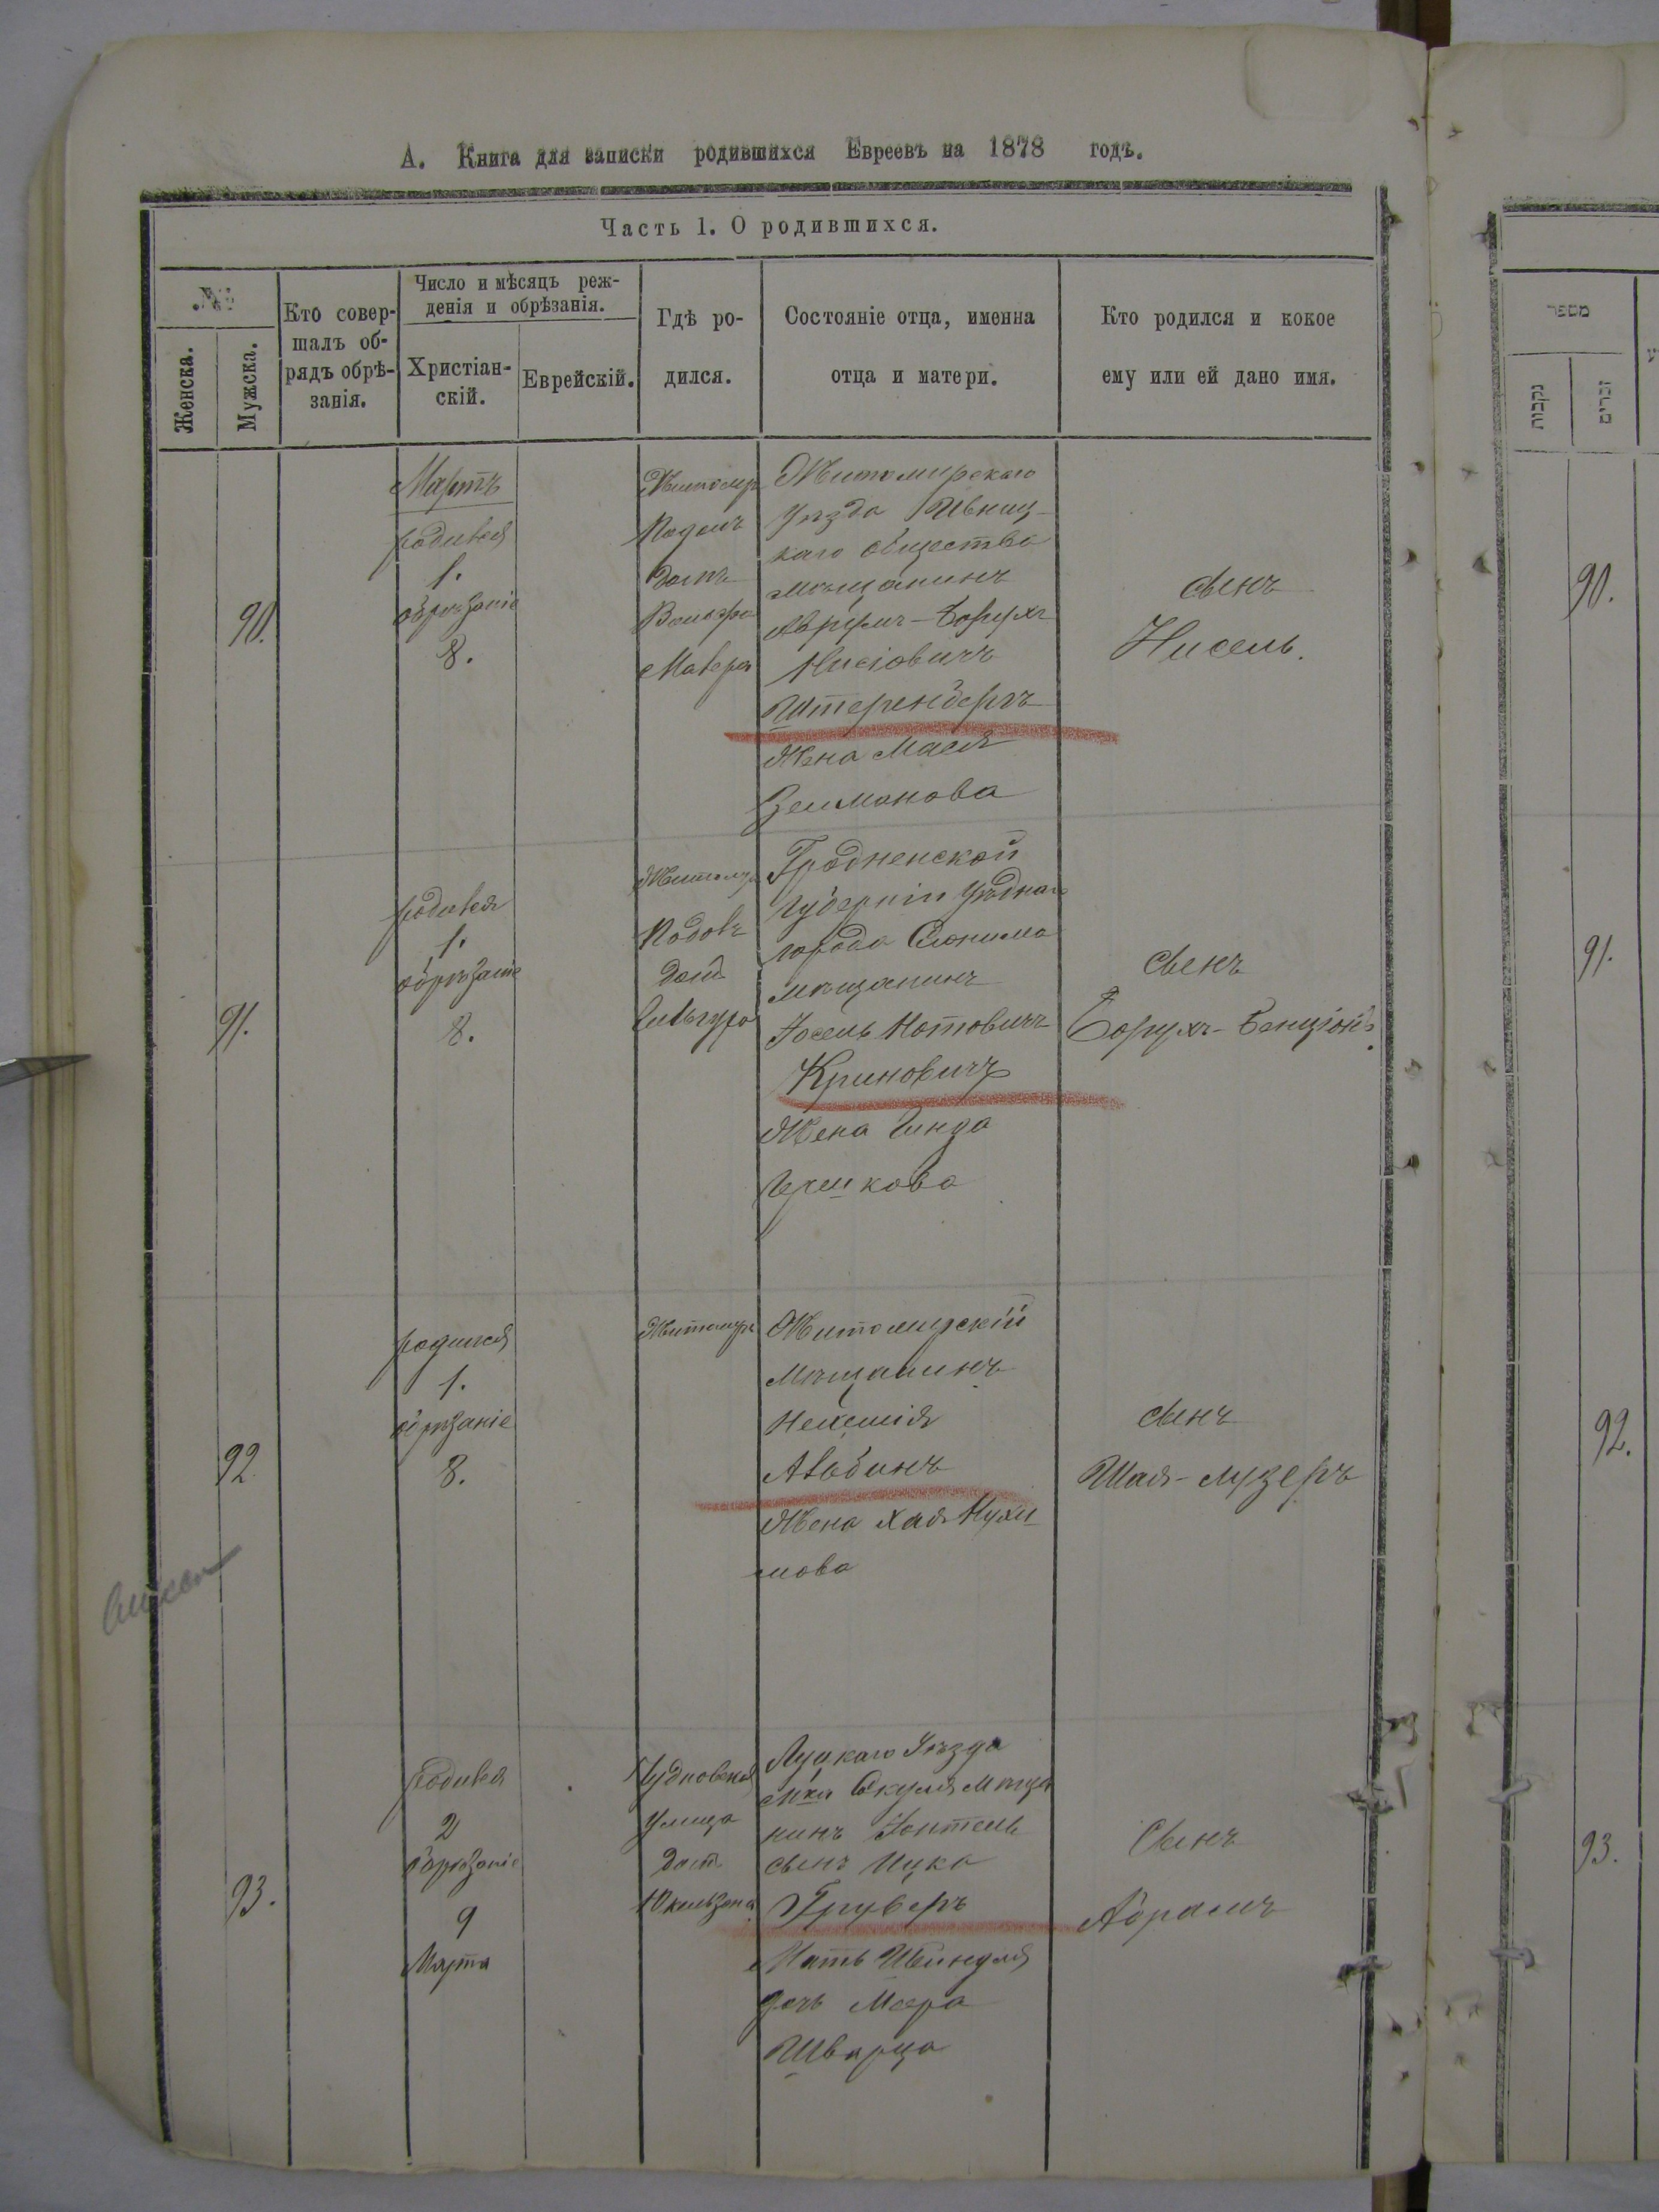 А. Книга для записки родившихся Евреевъ на 1878 годъ.
Часть 1. О родившихся.
№
Женска.
Мужска.
Кто совер-
шалъ об-
рядъ обрѣ-
занія.
Число и мѣсяцъ реж-
денія и обрѣзанія.
Христіан-
скій.
Еврейскій.
Гдѣ ро-
дился.
Состояніе отца, именна
отца и матери.
Кто родился и кокое
ему или ей дано имя.
90.
Мартъ
родился
1.
обрѣзаніе
8.
Житомир
домъ
Житомирскаго
уѣзда Ивниц-
каго общества
мѣщанинъ
Аврумъ-Борухъ
Нисіовичъ
Штеренбергъ
Жена Мася
Зелманова
сынъ
Нисель.
91.
родился
1.
обрѣзаніе
8.
Житомир
домъ
Гродненской
губерніи уѣзднаго
города Слонима
мѣщанинъ
Іосель Нотовичъ
Криновичъ
Жена Гинда
Гершкова
сынъ
Борухъ-Бенціонъ.
92
родился
1.
обрѣзаніе
8.
Житомиръ
Житомирскій
Мѣщанинъ
Нехемія
Жена Хая Нухи-
мова
сынъ
Шая-Лузеръ
93.
родился
2
обрѣзаніе
9
Марта
Чудновская
улица
домъ
Луцкаго уѣзда
мѣща
нинъ
сынъ Ицка
Груберъ
Мать Шейндля
дочь Меера
Шварца
Сынъ
Абрамъ
מספר
נקבות
זכרים
90.
91.
92.
93.